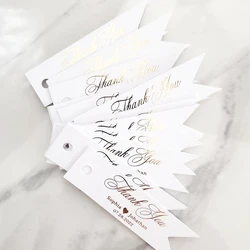 Thank You
Thank You
Thank You
Thank You
Thank You
Sophia ♥ Jonathan
07.08.2022